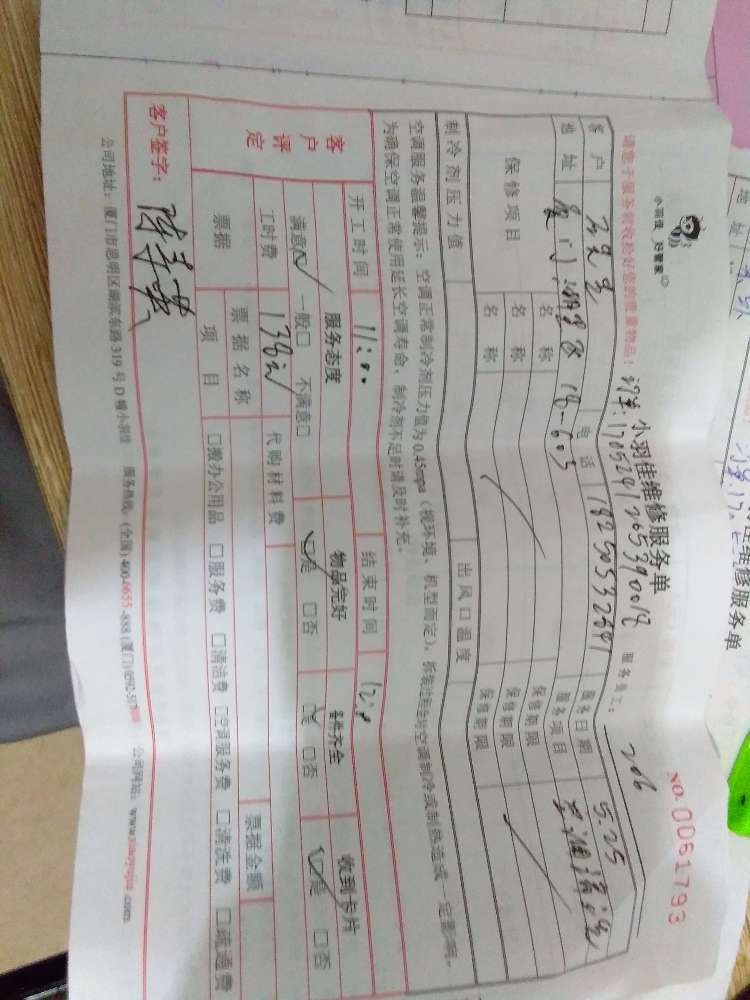 小羽佳 好管家
小羽佳维修服务单
NO. 0061793
请您于服务前收检好您的贵重物品!
服务员工: 206
客户
电话 18250532641
服务日期 5.25
地址
18-603
服务项目
保修项目
名称
保修期限
名称
保修期限
名称
保修期限
制冷剂压力值
出风口温度
空调服务温馨提示:空调正常制冷剂压力值为0.45mpa(视环境、机型而定),拆装过程会对空调制冷或制热造成一定影响,
为确保空调正常使用延长空调寿命,制冷剂不足时请及时补充。
开工时间 11:00
结束时间
客户评定
服务态度
物品完好
备件齐全
收到卡片
满意☑ 一般□ 不满意□
☑是 □否
☑是 □否
☑是 □否
工时费 138元
代购材料费
票据
票据名称
票据金额
项目
□搬办公用品 □服务费 □清洁费 □空调服务费 □清洗费 □疏通费
客户签字:
公司地址:厦门市思明区湖滨东路319号D幢小羽佳 服务热线:(全国)400-6655-888(厦门)0592-
公司网站:www.xiaoyujia.com
维修服务单